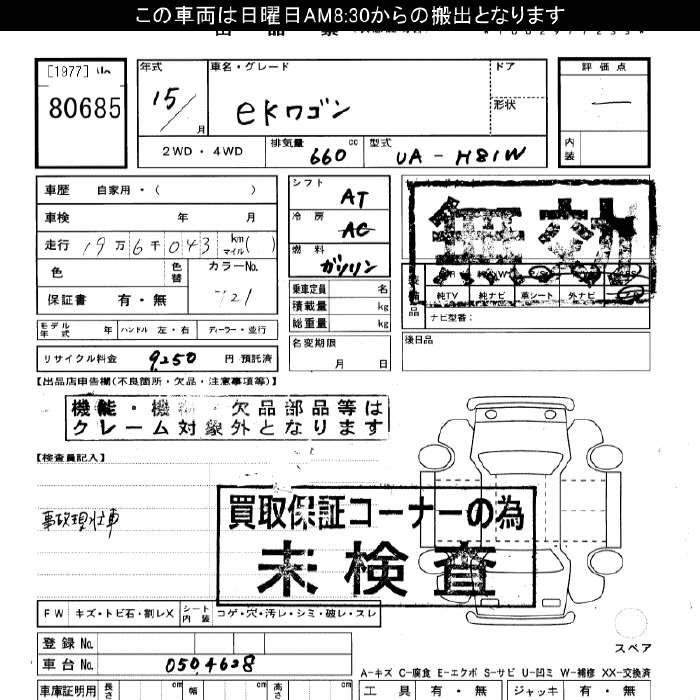 この車両は日曜日AM8:30からの搬出となります
[1977]
80685
年式 車名・グレード ドア 評価点
15/月 eKワゴン 形状 —
2WD・4WD 排気量 660 cc 型式 UA-H81W 内装
車歴 自家用・( )
車検 年 月
走行 19万6千043 km マイル( )
色 色替 カラーNo.
保証書 有・無 721
モデル年式 年 ハンドル 左・右 ディーラー・並行
リサイクル料金 9,250 円 預託済
シフト AT
冷房 AC
燃料 ガソリン
乗車定員 名
積載量 kg
総重量 kg
名変期限
月 日
純TV 純ナビ 革シート 外ナビ
備品 ナビ型番:
後日品
【出品店申告欄(不良箇所・欠品・注意事項等)】
機能・機 ・欠品部品等は
クレーム対象外となります
【検査員記入】
事故現状車
買取保証コーナーの為
未検査
FW キズ・トビ石・割レX シート内装 コゲ・穴・汚レ・シミ・破レ・スレ
登録No.
車台No. 0504628
スペア
A-キズ C-腐食 E-エクボ S-サビ U-凹ミ W-補修 XX-交換済
車庫証明用 長さ cm 幅 cm 高さ cm
工具 有・無 ジャッキ 有・無